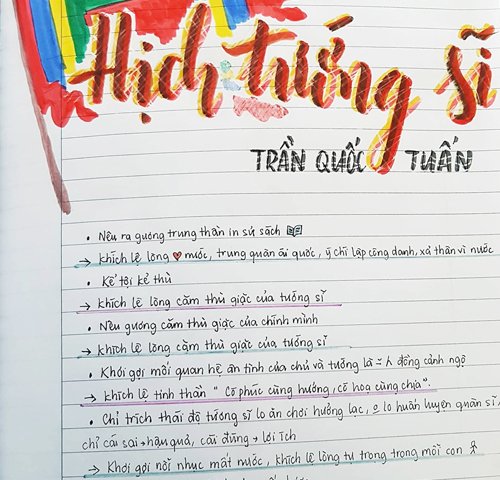 Hịch tướng sĩ
TRẦN QUỐC TUẤN
• Nêu ra gương trung thần in sử sách
→ khích lệ lòng ❤ nước, trung quân ái quốc, ý chí lập công danh, xả thân vì nước
• Kể tội kẻ thù
→ khích lệ lòng căm thù giặc của tướng sĩ
• Nêu gương căm thù giặc của chính mình
→ khích lệ lòng căm thù giặc của tướng sĩ
• Khơi gợi mối quan hệ ân tình của chủ và tướng là = người đồng cảnh ngộ
→ khích lệ tinh thần " Có phúc cùng hưởng, có hoạ cùng chịu".
• Chỉ trích thái độ tướng sĩ lo ăn chơi hưởng lạc, o lo huấn luyện quân sĩ,
chỉ cái sai → hậu quả, cái đúng → lợi ích
→ Khơi gợi nỗi nhục mất nước, khích lệ lòng tự trọng trong mỗi con